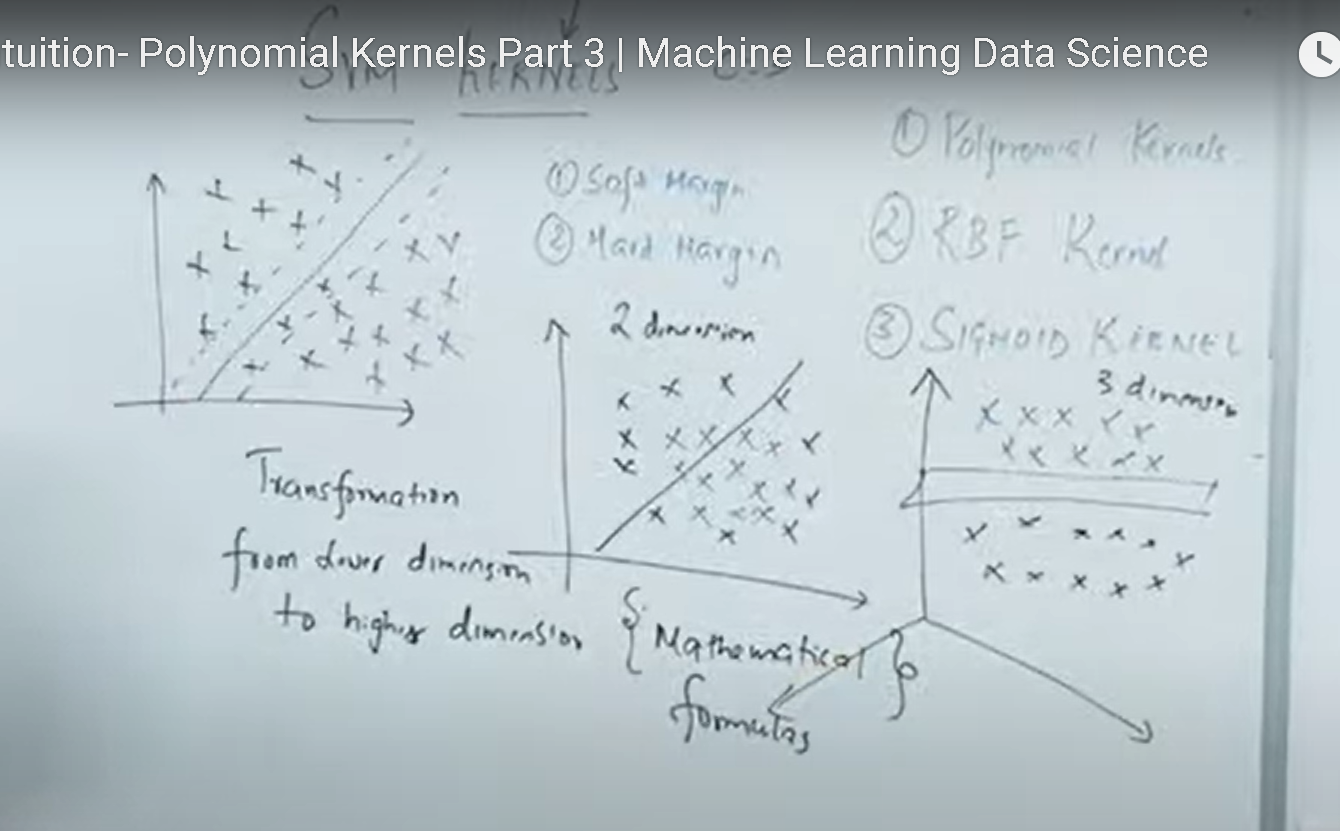 tuition- Polynomial Kernels Part 3 | Machine Learning Data Science
SVM KERNELS
① Soft Margin
② Hard Margin
① Polynomial Kernels
② RBF Kernel
③ SIGMOID KERNEL
2 dimension
3 dimension
Transformation
from lower dimension
to higher dimension
{ Mathematical }
formulas